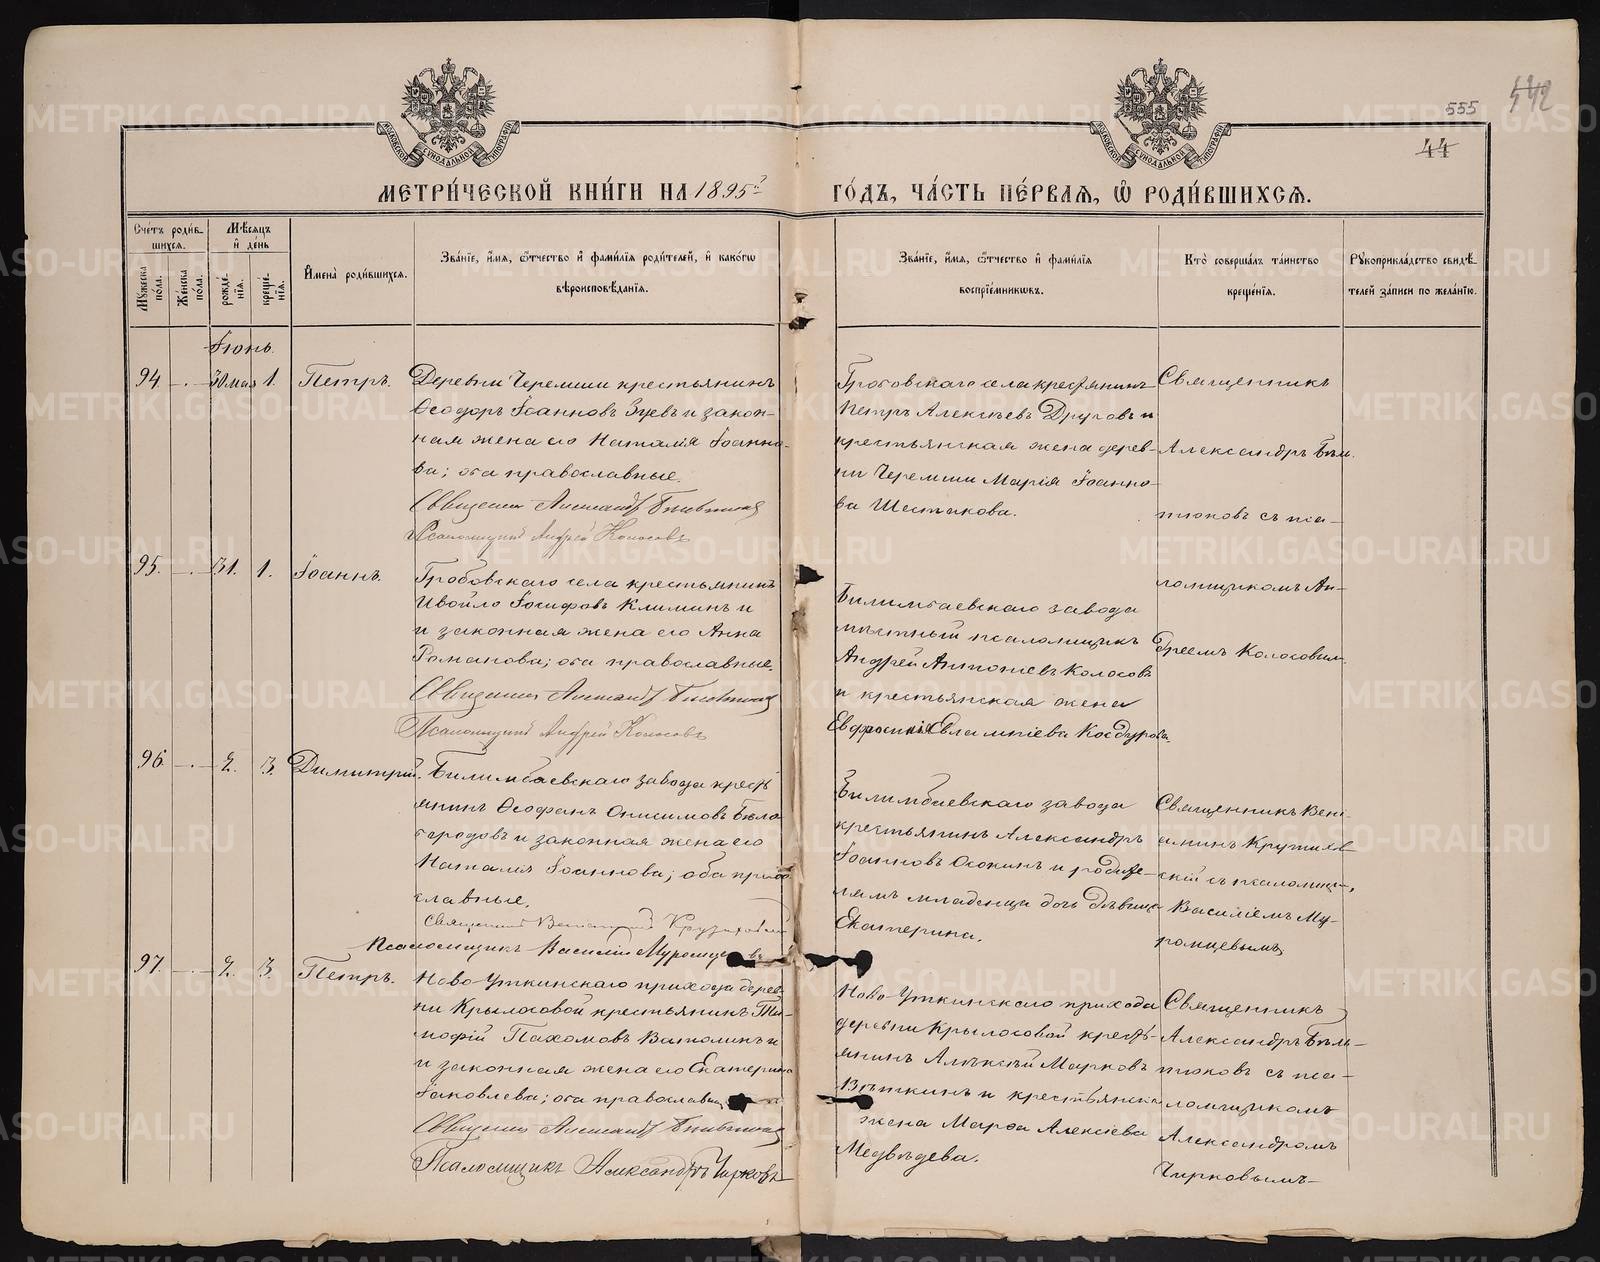 555
442
44
МЕТРИ́ЧЕСКОЙ КНИ́ГИ НА 1895й ГО́ДЪ, ЧА́СТЬ ПЕ́РВАЯ, Ѿ РОДИ́ВШИХСЯ.
Сче́тъ роди́в-
шихся.
Мѣ́сяцъ
и҆ де́нь
Мꙋ́жеска по́ла.
Же́нска по́ла.
рожде́-
нїя.
креще́-
нїя.
И҆мена̀ роди́вшихся.
Зва́нїе, и҆́мя, ѻ҆́тчество и҆ фами́лїя роди́телей, и҆ како́гѡ
вѣроисповѣ́данїя.
Зва́нїе, и҆́мя, ѻ҆́тчество и҆ фами́лїя
воспрїе́мникѡвъ.
Кто̀ соверша́лъ та́инство
креще́нїя.
Рꙋкоприкла́дство свидѣ́-
телей за́писи по жела́нїю.
Іюнь.
94. 30 мая 1. Петръ.
Деревни Черемши крестьянинъ
Ѳеодоръ Іоанновъ Зуевъ и закон-
ная жена его Наталія Іоанно-
ва; оба православные.
Священникъ Александръ
Псаломщикъ Андрей Колосовъ
Гробовскаго села крестьянинъ
Петръ Алексѣевъ Друговъ и
крестьянская жена дерев-
ни Черемши Марія Іоанно-
ва Шестакова.
Священникъ
Александръ Бѣль
тюковъ съ пса-
ломщикомъ Ан-
дреемъ Колосовымъ.
95. 31. 1. Іоаннъ.
Гробовскаго села крестьянинъ
Іосифовъ Климинъ и
и законная жена его Анна
Романова; оба православные.
Священникъ Александръ
Псаломщикъ Андрей Колосовъ
Билимбаевскаго завода
мѣстный псаломщикъ
Андрей Антоніевъ Колосовъ
и крестьянская жена
Евфросинія Евлампіева
96. 2. 3. Димитрій.
Билимбаевскаго завода кресть
янинъ Ѳеофанъ Онисимовъ Бѣло
городовъ и законная жена его
Наталія Іоаннова; оба право
славные.
Священникъ Веніаминъ
Псаломщикъ Василій Муромцевъ
Билимбаевскаго завода
крестьянинъ Александръ
Іоанновъ Осокинъ и родите-
лямъ младенца дочь дѣвица
Екатерина.
Священникъ Вені-
аминъ
скій съ псаломщи-
Василіемъ Му-
ромцевымъ
97. 2. 3. Петръ.
Ново-Уткинскаго прихода дерев-
ни Крылосовой крестьянинъ Ти-
мофій Пахомовъ Ватолинъ и
и законная жена его Екатерина
Іаковлева; оба православные
Священникъ Александръ
Псаломщикъ Александръ Чирковъ
Ново-Уткинскаго прихода
деревни Крылосовой кресть-
янинъ Алексѣй Марковъ
Вяткинъ и крестьянская
жена Марѳа Алексіева
Медвѣдева.
Священникъ
Александръ Бѣль-
тюковъ съ пса-
ломщикомъ
Александромъ
Чирковымъ
METRIKI.GASO-URAL.RU